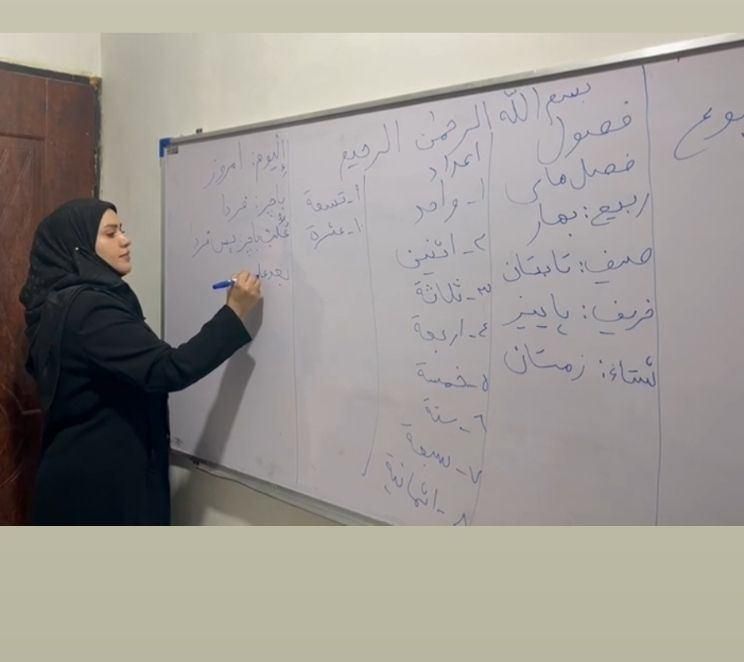 بسم الله الرحمن الرحيم
فصول
فصل های
ربيع: بهار
صيف: تابستان
خريف: پاییز
شتاء: زمستان
اعداد
١- واحد
٢- اثنين
٣- ثلاثة
٤- اربعة
٥- خمسة
٦- ستة
٧- سبعة
٨- اثمانية
٩- تسعة
١٠- عشرة
إليوم: امروز
باچر: فردا
عُگُب باچر: پس فردا
بعد